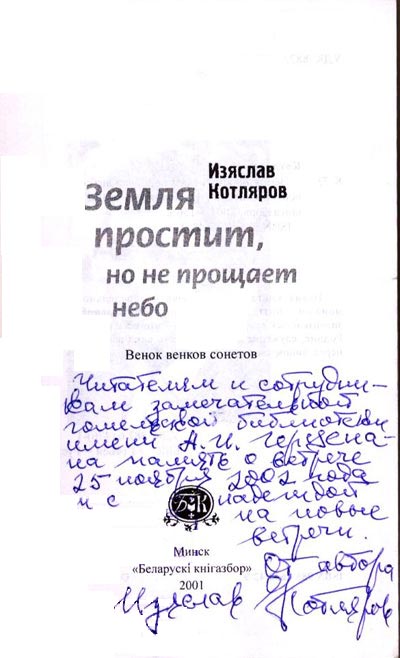 Изяслав
Котляров
Земля
простит,
но не прощает
небо
Венок венков сонетов
Читателям и сотрудни-
кам замечательной
гомельской библиотеки
имени А. И. Герцена -
на память о встрече
25 ноября 2002 года
и с надеждой
на новые
встречи.
БК
Минск
«Беларускі кнігазбор»
2001
От автора
Изяслав Котляров